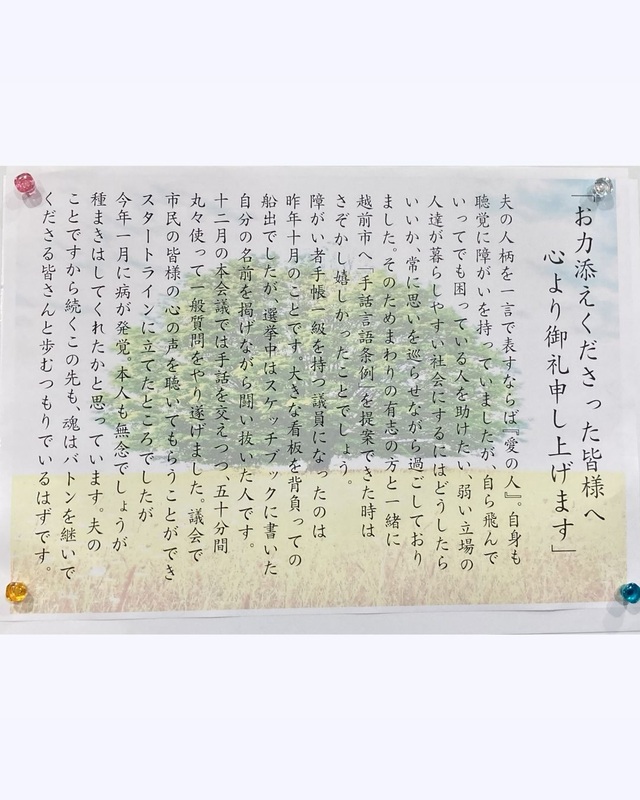 「お力添えくださった皆様へ
心より御礼申し上げます」
夫の人柄を一言で表すならば『愛の人』。自身も
聴覚に障がいを持っていましたが、自ら飛んで
いってでも困っている人を助けたい、弱い立場の
人達が暮らしやすい社会にするにはどうしたら
いいか、常に思いを巡らせながら過ごしており
ました。そのためまわりの有志の方と一緒に
越前市へ「手話言語条例」を提案できた時は
さぞかし嬉しかったことでしょう。
障がい者手帳一級を持つ議員になったのは
昨年十月のことです。大きな看板を背負っての
船出でしたが、選挙中はスケッチブックに書いた
自分の名前を掲げながら闘い抜いた人です。
十二月の本会議では手話を交えつつ、五十分間
丸々使って一般質問をやり遂げました。議会で
市民の皆様の心の声を聴いてもらうことができ
スタートラインに立てたところでしたが
今年一月に病が発覚。本人も無念でしょうが
種まきはしてくれたかと思っています。夫の
ことですから続くこの先も、魂はバトンを継いで
くださる皆さんと歩むつもりでいるはずです。